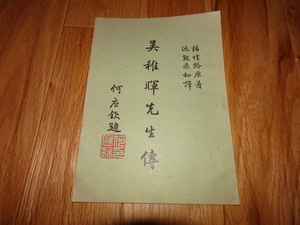 楊愷齡原著
沈覲鼎和譯
吳稚暉先生傳
何應欽題